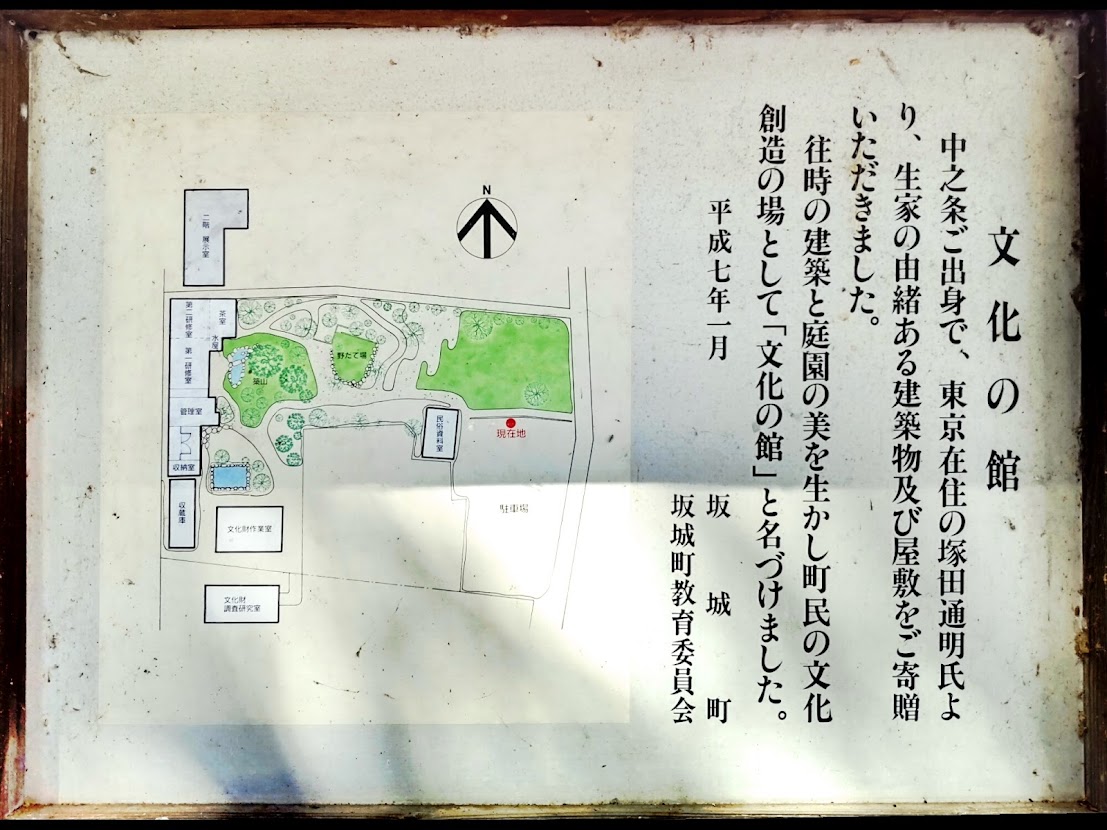 文化の館
中之条ご出身で、東京在住の塚田通明氏よ
り、生家の由緒ある建築物及び屋敷をご寄贈
いただきました。
往時の建築と庭園の美を生かし町民の文化
創造の場として「文化の館」と名づけました。
平成七年一月
坂城町
坂城町教育委員会
N
二階 展示室
茶室
水屋
第二研修室
第一研修室
管理室
収納室
収蔵庫
築山
野だて場
民俗資料室
現在地
駐車場
文化財作業室
文化財
調査研究室